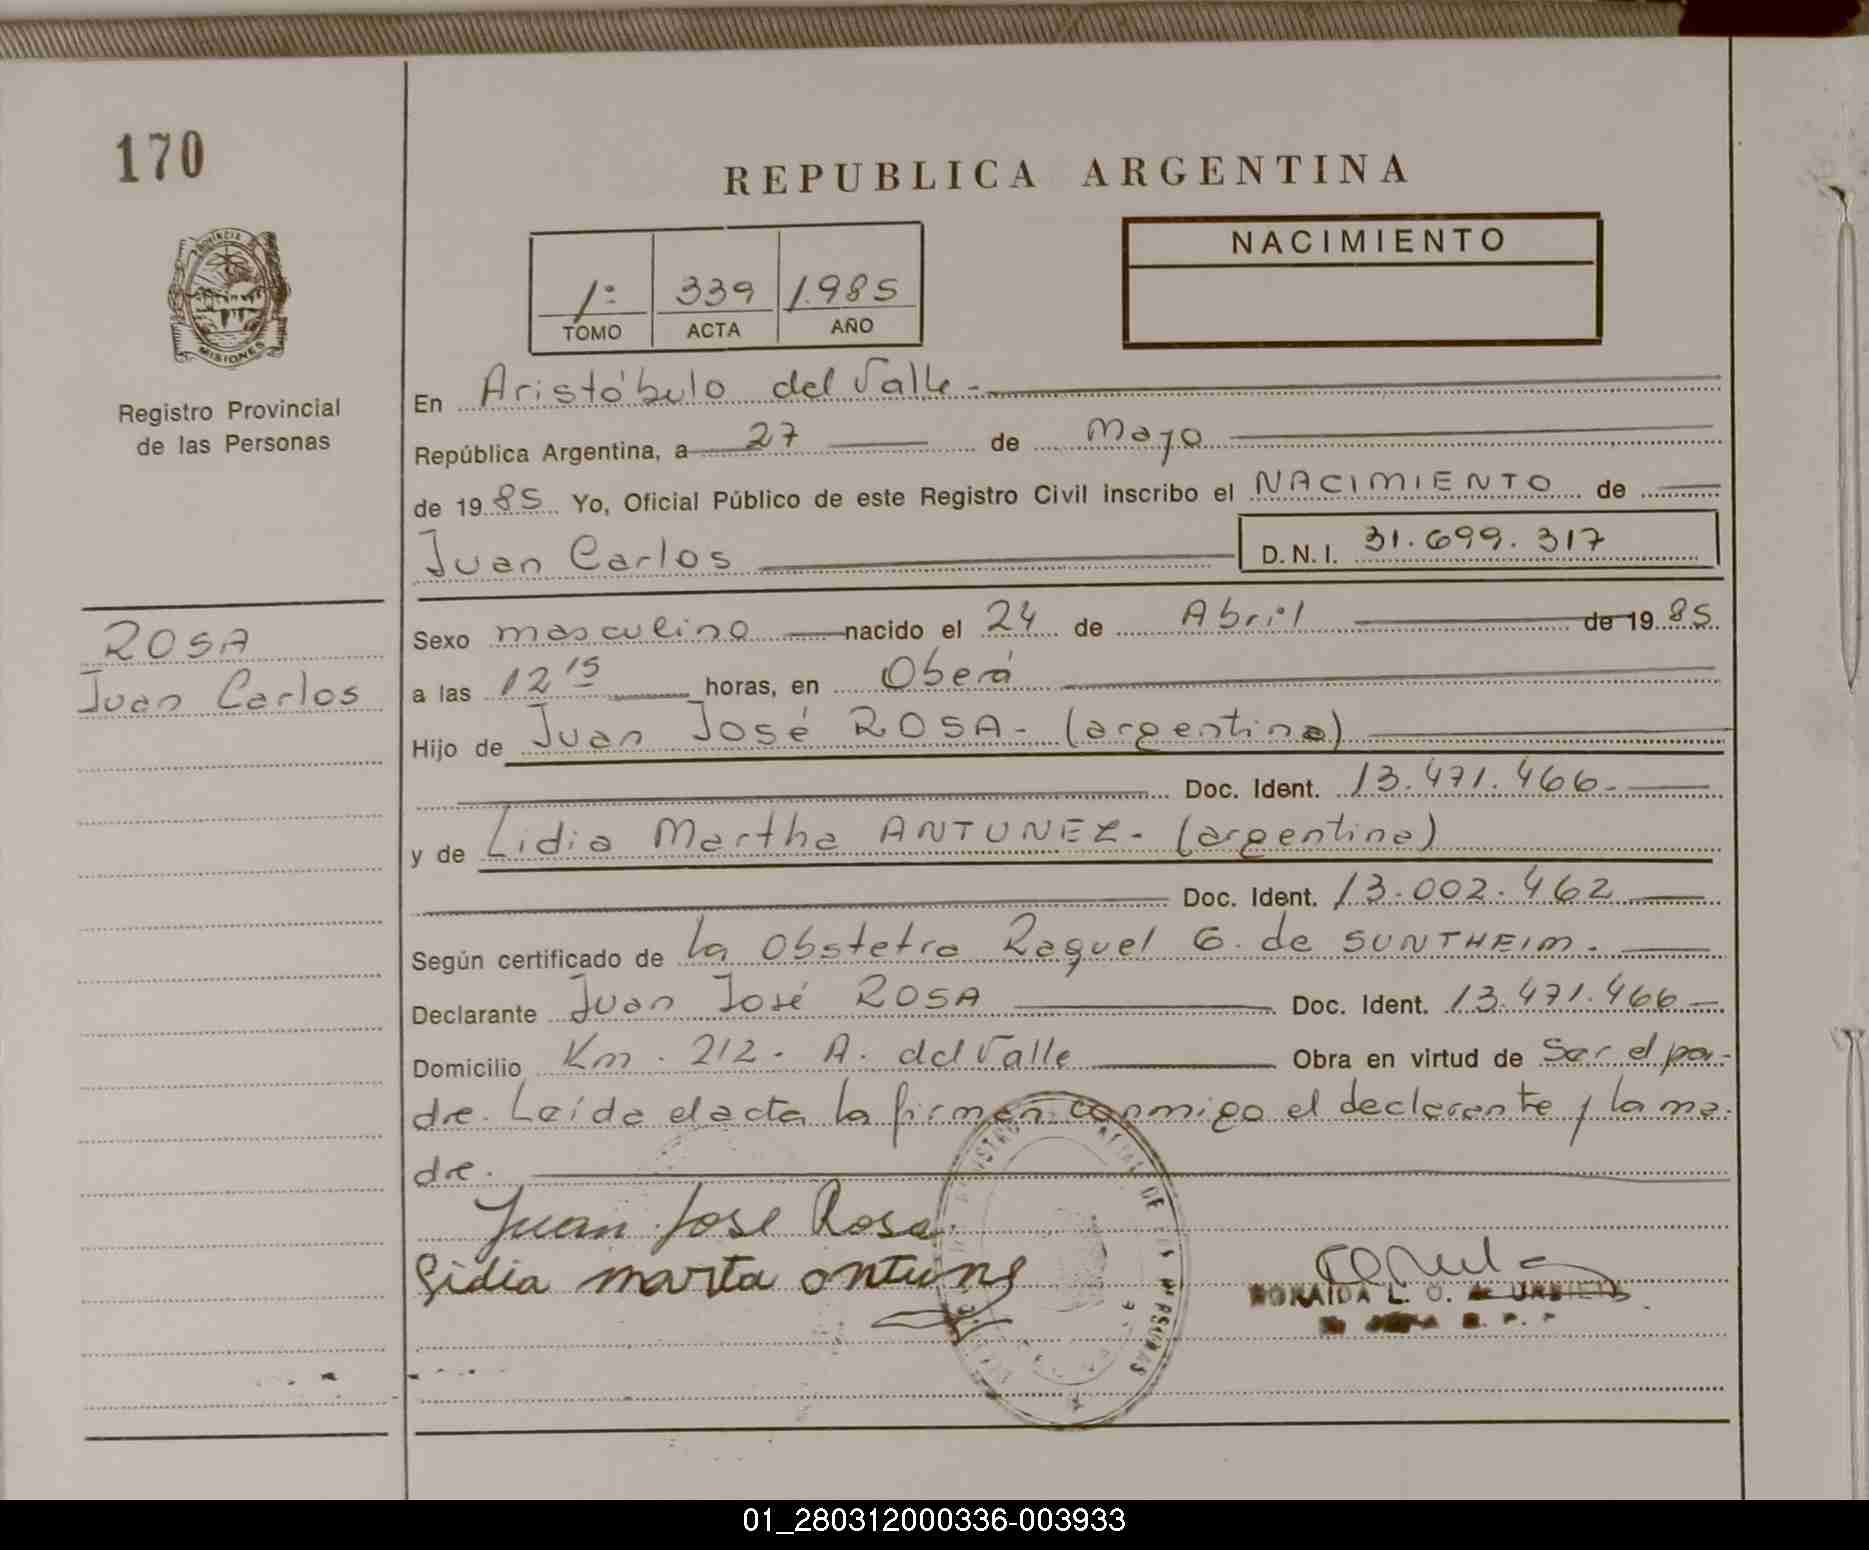 170
REPUBLICA ARGENTINA
PROVINCIA
MISIONES
Registro Provincial
de las Personas
1º 339 1.985
TOMO ACTA AÑO
NACIMIENTO
En Aristóbulo del Valle.-
República Argentina, a 27 de Mayo
de 1985 Yo, Oficial Público de este Registro Civil inscribo el NACIMIENTO de
Juan Carlos D.N.I. 31.699.317
ROSA
Juan Carlos
Sexo masculino nacido el 24 de Abril de 1985
a las 12 15 horas, en Oberá
Hijo de Juan José ROSA- (argentino)
Doc. Ident. 13.471.466.-
y de Lidia Martha ANTUNEZ- (argentina)
Doc. Ident. 13.002.462
Según certificado de la Obstetra Raquel G. de SUNTHEIM.
Declarante Juan José ROSA Doc. Ident. 13.471.466
Domicilio Km. 212. A. del Valle Obra en virtud de Ser el pa-
dre. Leída el acta la firman conmigo el declarante y la ma-
dre.
Juan Jose Rosa
Lidia marta antunes
L. O.
01_280312000336-003933